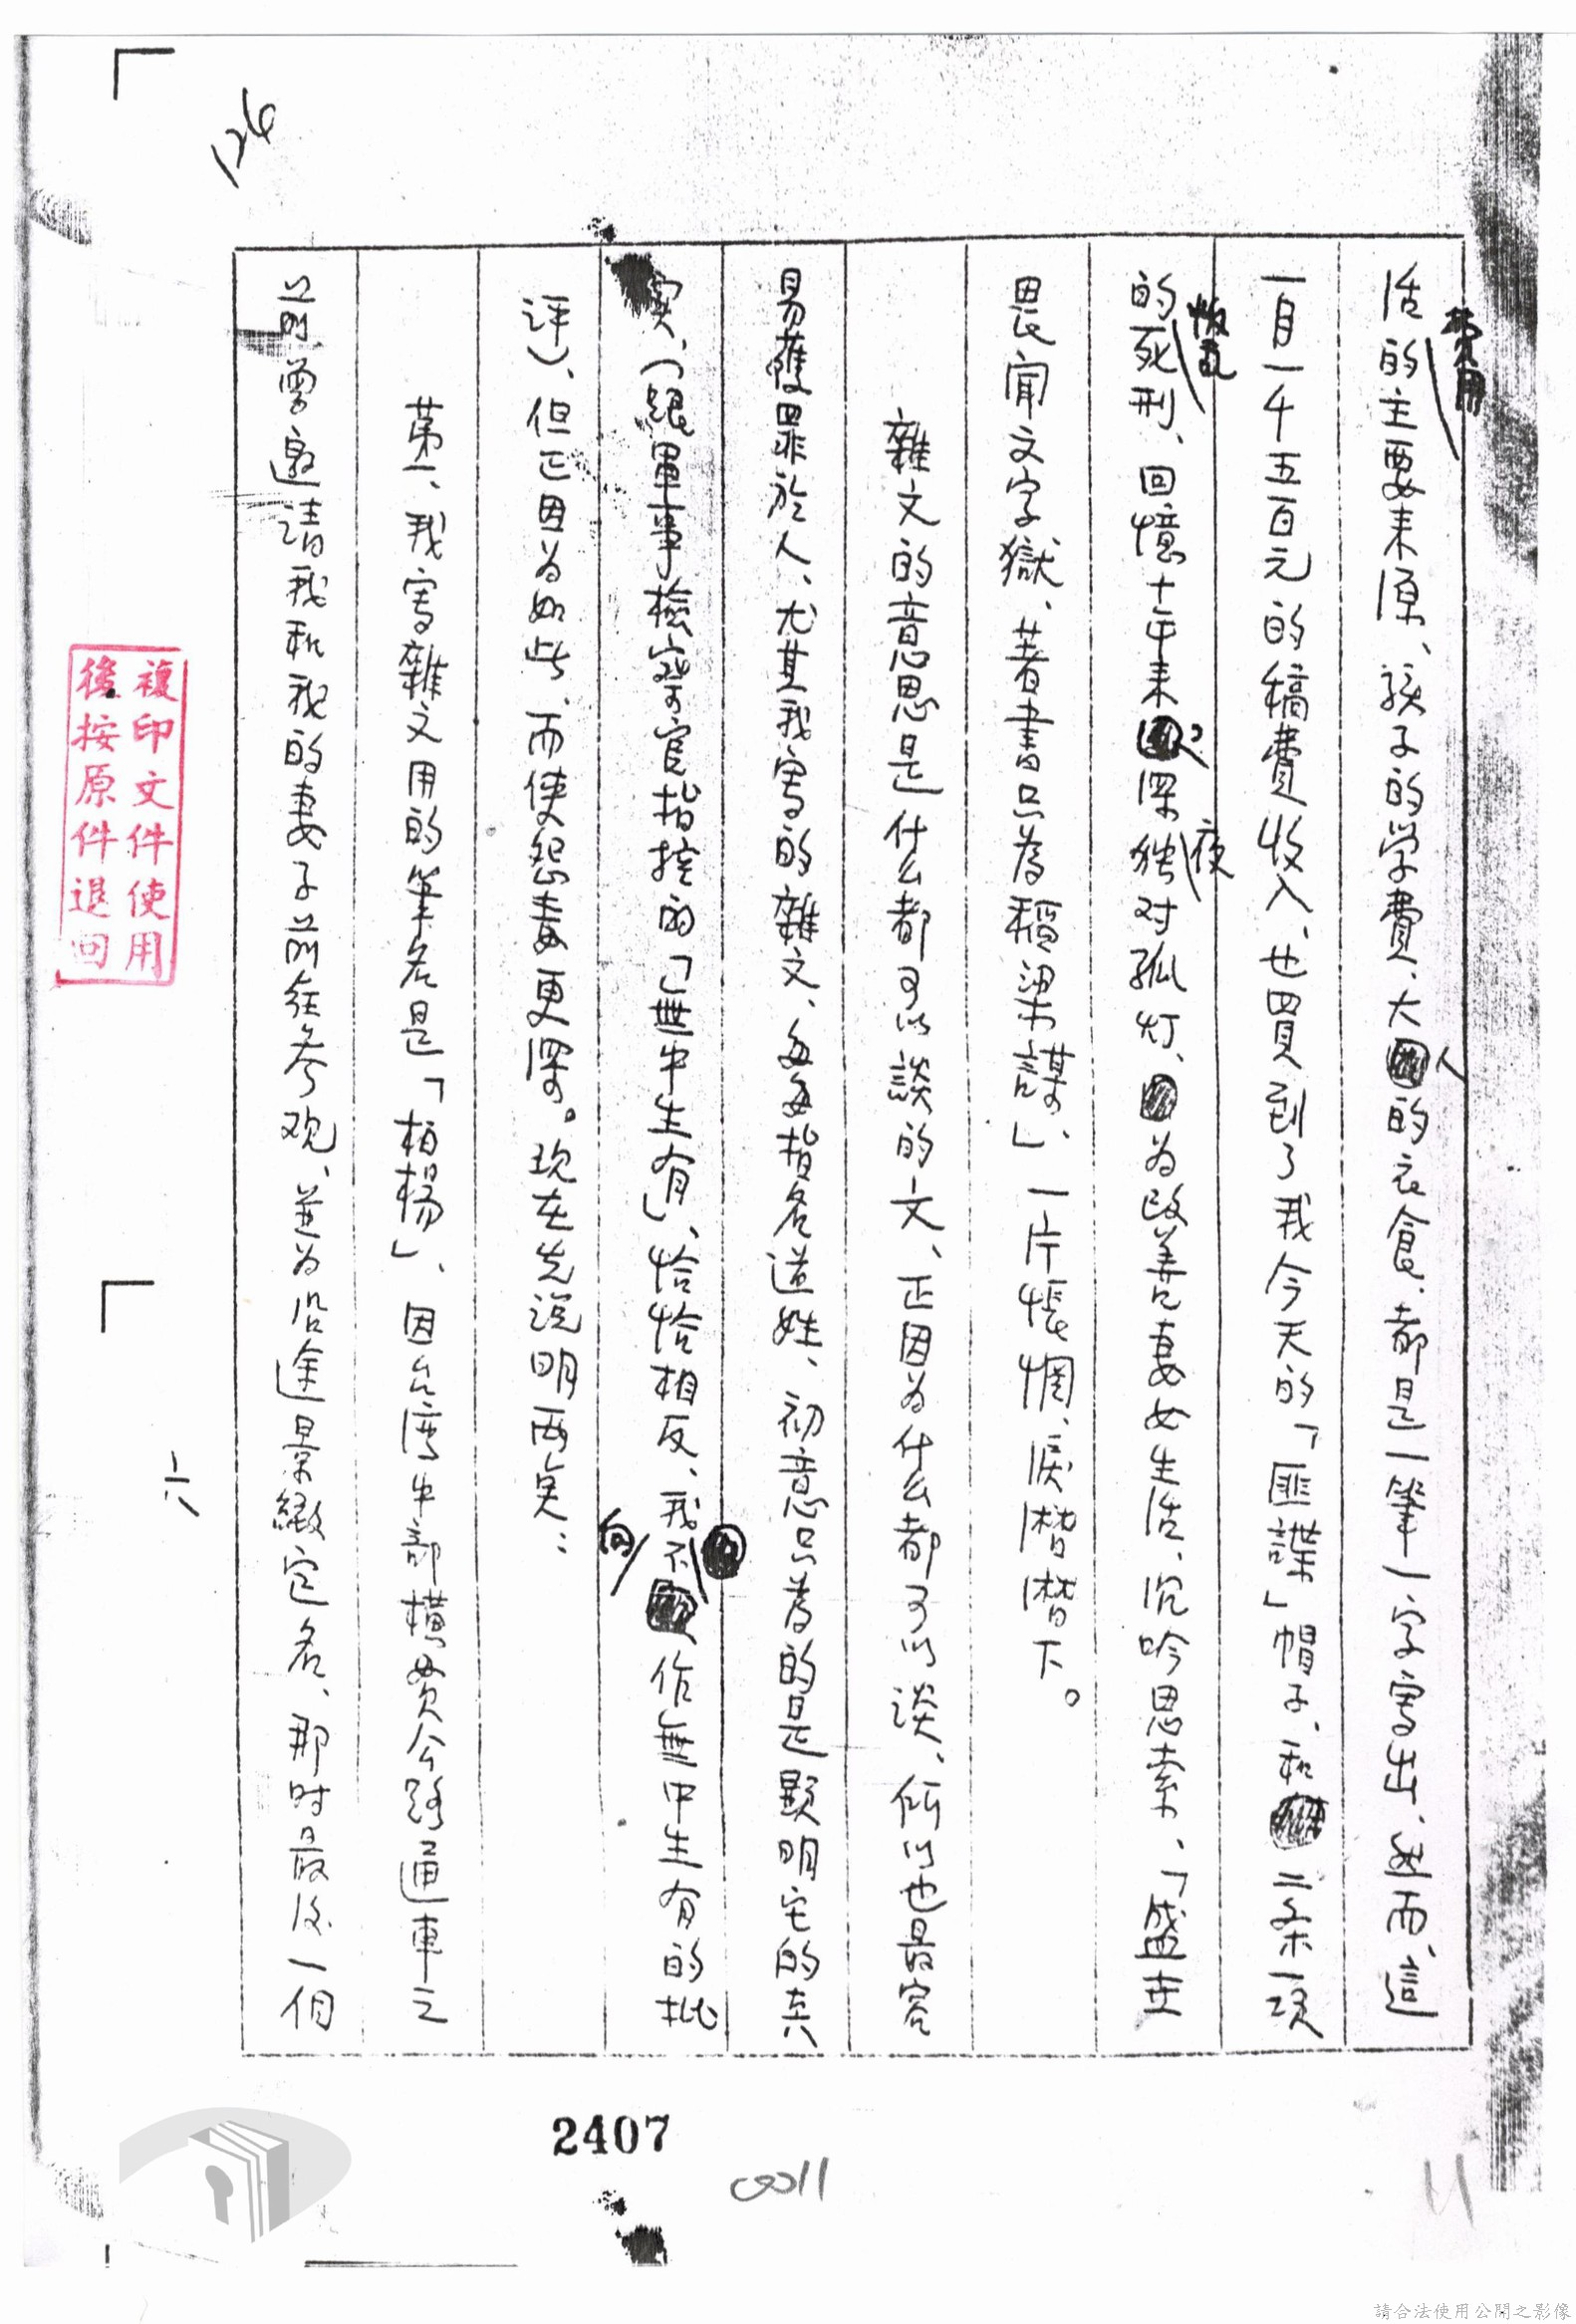 活費用的主要来源、孩子的学費、大人的衣食、都是一筆一字寫出、然而、這
一月一千五百元的稿費收入、也買到了我今天的「匪諜」帽子、和二条一項
的叛乱死刑、回憶十年来、深夜独对孤灯、为改善妻女生活、沉吟思索、「盛世
畏聞文字獄、著書只為稻粱謀」、一片悵惘、淚潸潸下。
雜文的意思是什么都可以談的文、正因为什么都可以談、所以也最容
易獲罪於人、尤其我寫的雜文、每每指名道姓、初意只為的是顯明它的真
实、（跟軍事檢察官指控的「無中生有」、恰恰相反、我向不作無中生有的批
评）、但正因为如此、而使怨毒更深。现在先说明两点：
第一、我寫雜文用的筆名是「柏楊」、因台湾中部橫贯公路通車之
前曾邀請我和我的妻子前往参观、並为沿途景緻定名、那时最后一個
六
124
複印文件使用
後按原件退回
2407
0011
11
請合法使用公開之影像